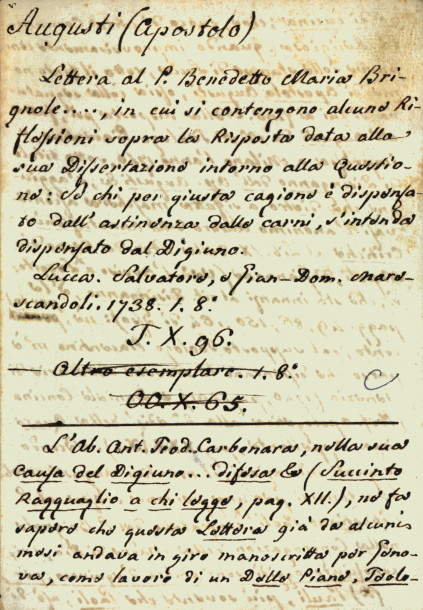 Augusti (Apostolo)
Lettera al P. Benedetto Maria Bri-
gnole....., in cui si contengono alcune Ri-
flessioni sopra la Risposta data alla
sua Dissertazione intorno alla Questio-
ne: Se chi per giusta cagione è dispensa-
to dall' astinenza dalle carni, s'intenda
dispensato dal Digiuno.
Lucca. Salvatore, e Gian-Dom. Mare-
scandoli. 1738. 1. 8.°
T. X. 96.
Altro esemplare. 1. 8.°
OO. X. 65.
L'Ab. Ant. Teod. Carbonara, nella sua
Causa del Digiuno... difesa &c (Succinto
Ragguaglio a chi legge, pag. XII.), ne fa
sapere che questa Lettera già da alcuni
mesi andava in giro manoscritta per Geno-
va, come lavoro di un Dolle Piane, Teolo-